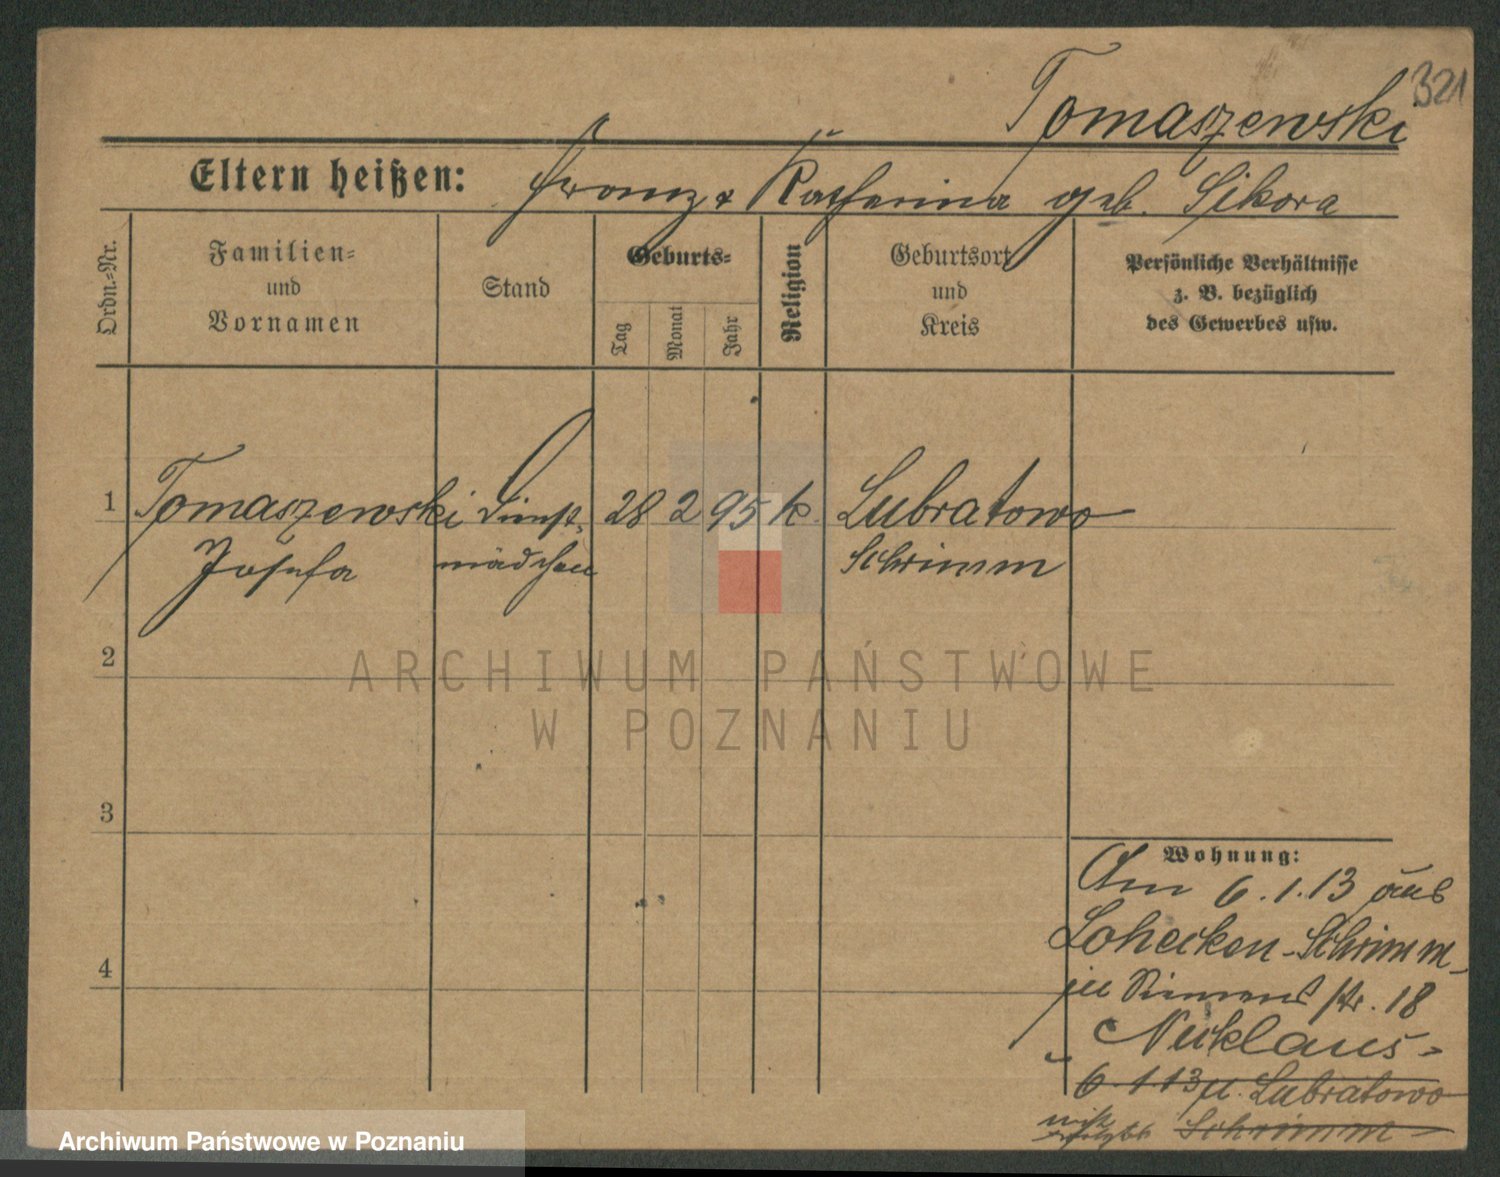 321
Tomaszewski
Eltern heißen: Franz & Katharina geb. Sikora
Ordn.-Nr.
Familien-
und
Vornamen
Stand
Geburts-
Tag
Monat
Jahr
Religion
Geburtsort
und
Kreis
Persönliche Verhältnisse
z. B. bezüglich
des Gewerbes usw.
1 Tomaszewski Dienst- 28 2 95 k Lubratowo
Josefa mädchen Schrimm
2
ARCHIWUM PAŃSTWOWE
W POZNANIU
3
Wohnung:
Am 6.1.13 aus
Schrimm
4
zu Siemens str. 18
6.1.13 Lubratowo
Schrimm
Archiwum Państwowe w Poznaniu